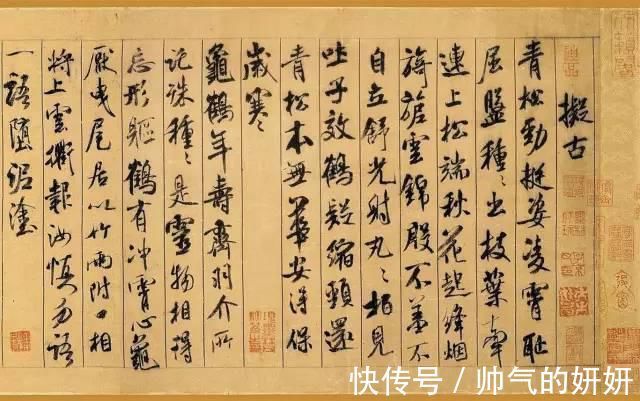 擬古
青松勁挺姿凌霄恥
屈盤種〻出枝葉牽
連上松端秋花起絳烟
旖旎雲錦殷不羞不
自立舒光射丸〻柏見
吐子效鶴疑縮頸還
青松本無華安得保
歲寒
龜鶴年壽齊羽介所
託殊種〻是靈物相得
忘形軀鶴有沖霄心龜
厭曳尾居以竹兩附口相
將上雲衢報汝慎勿語
一語墮泥塗
快传号/帅气的妍妍